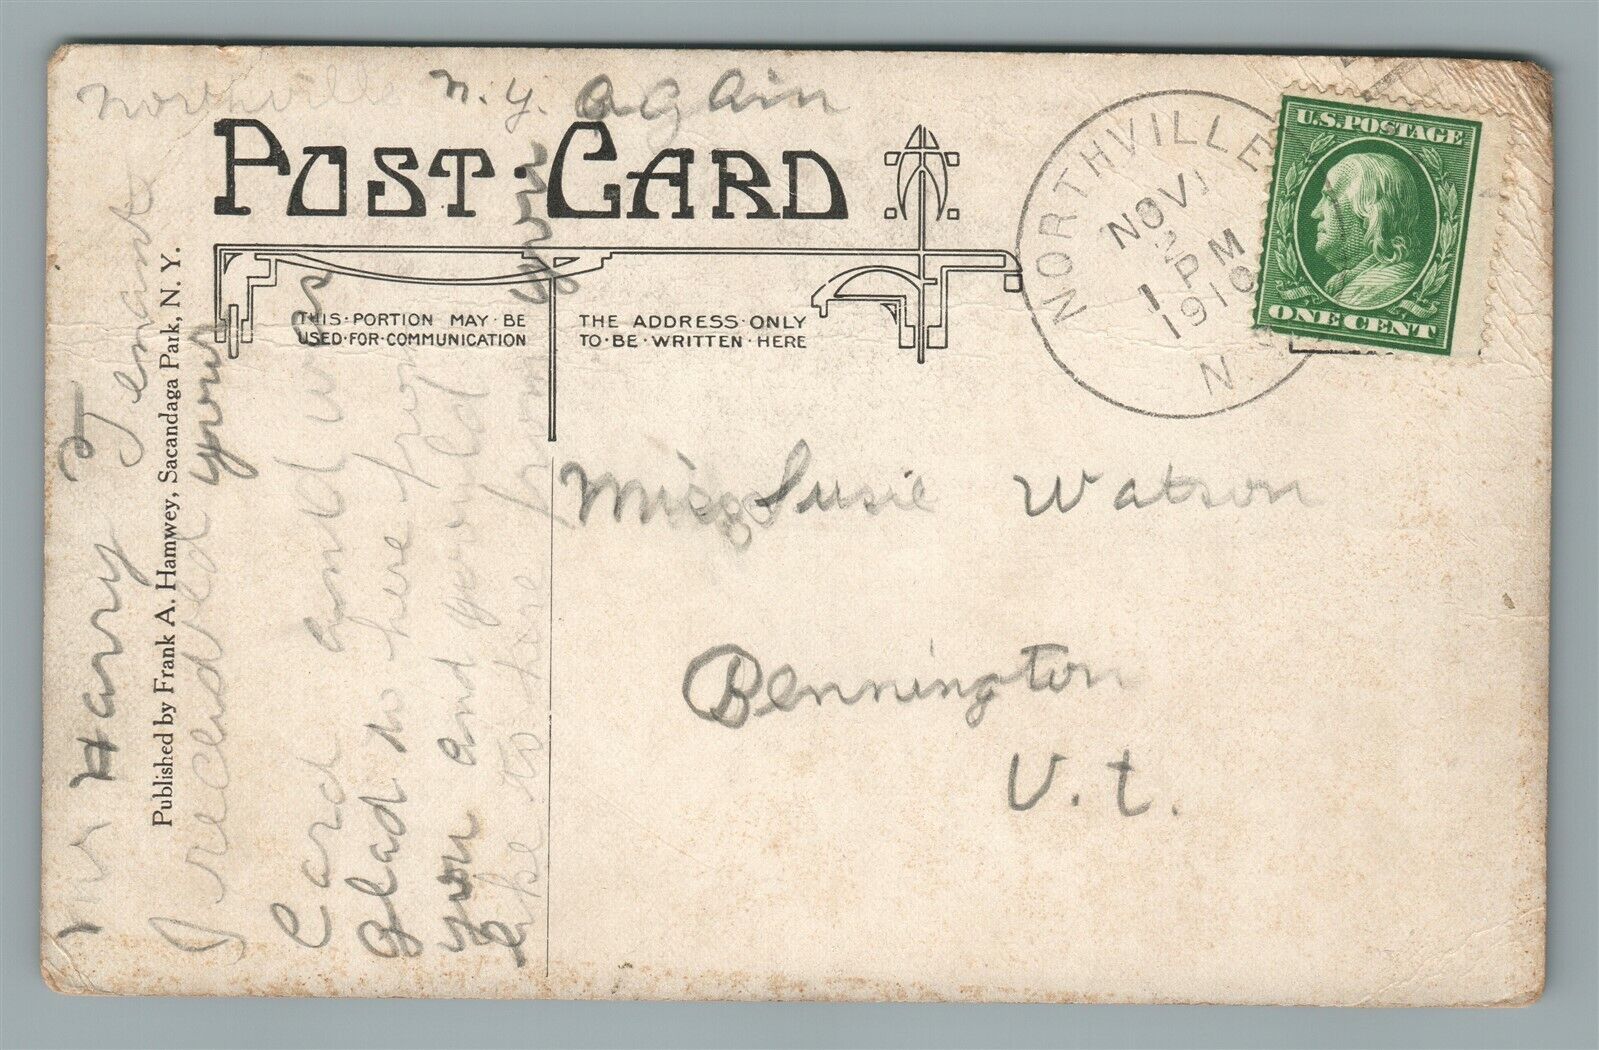 Northville N.Y. again
POST CARD
THIS PORTION MAY BE
USED FOR COMMUNICATION
THE ADDRESS ONLY
TO BE WRITTEN HERE
NORTHVILLE
NOV
2
1 PM
1910
N.Y.
U.S. POSTAGE
ONE CENT
Miss Susie Watson
Bennington
V.t.
Published by Frank A. Hamwey, Sacandaga Park, N. Y.
Mr Harry Tenant
I recieved your
Card and was
glad to here from
you and would
like to here from you